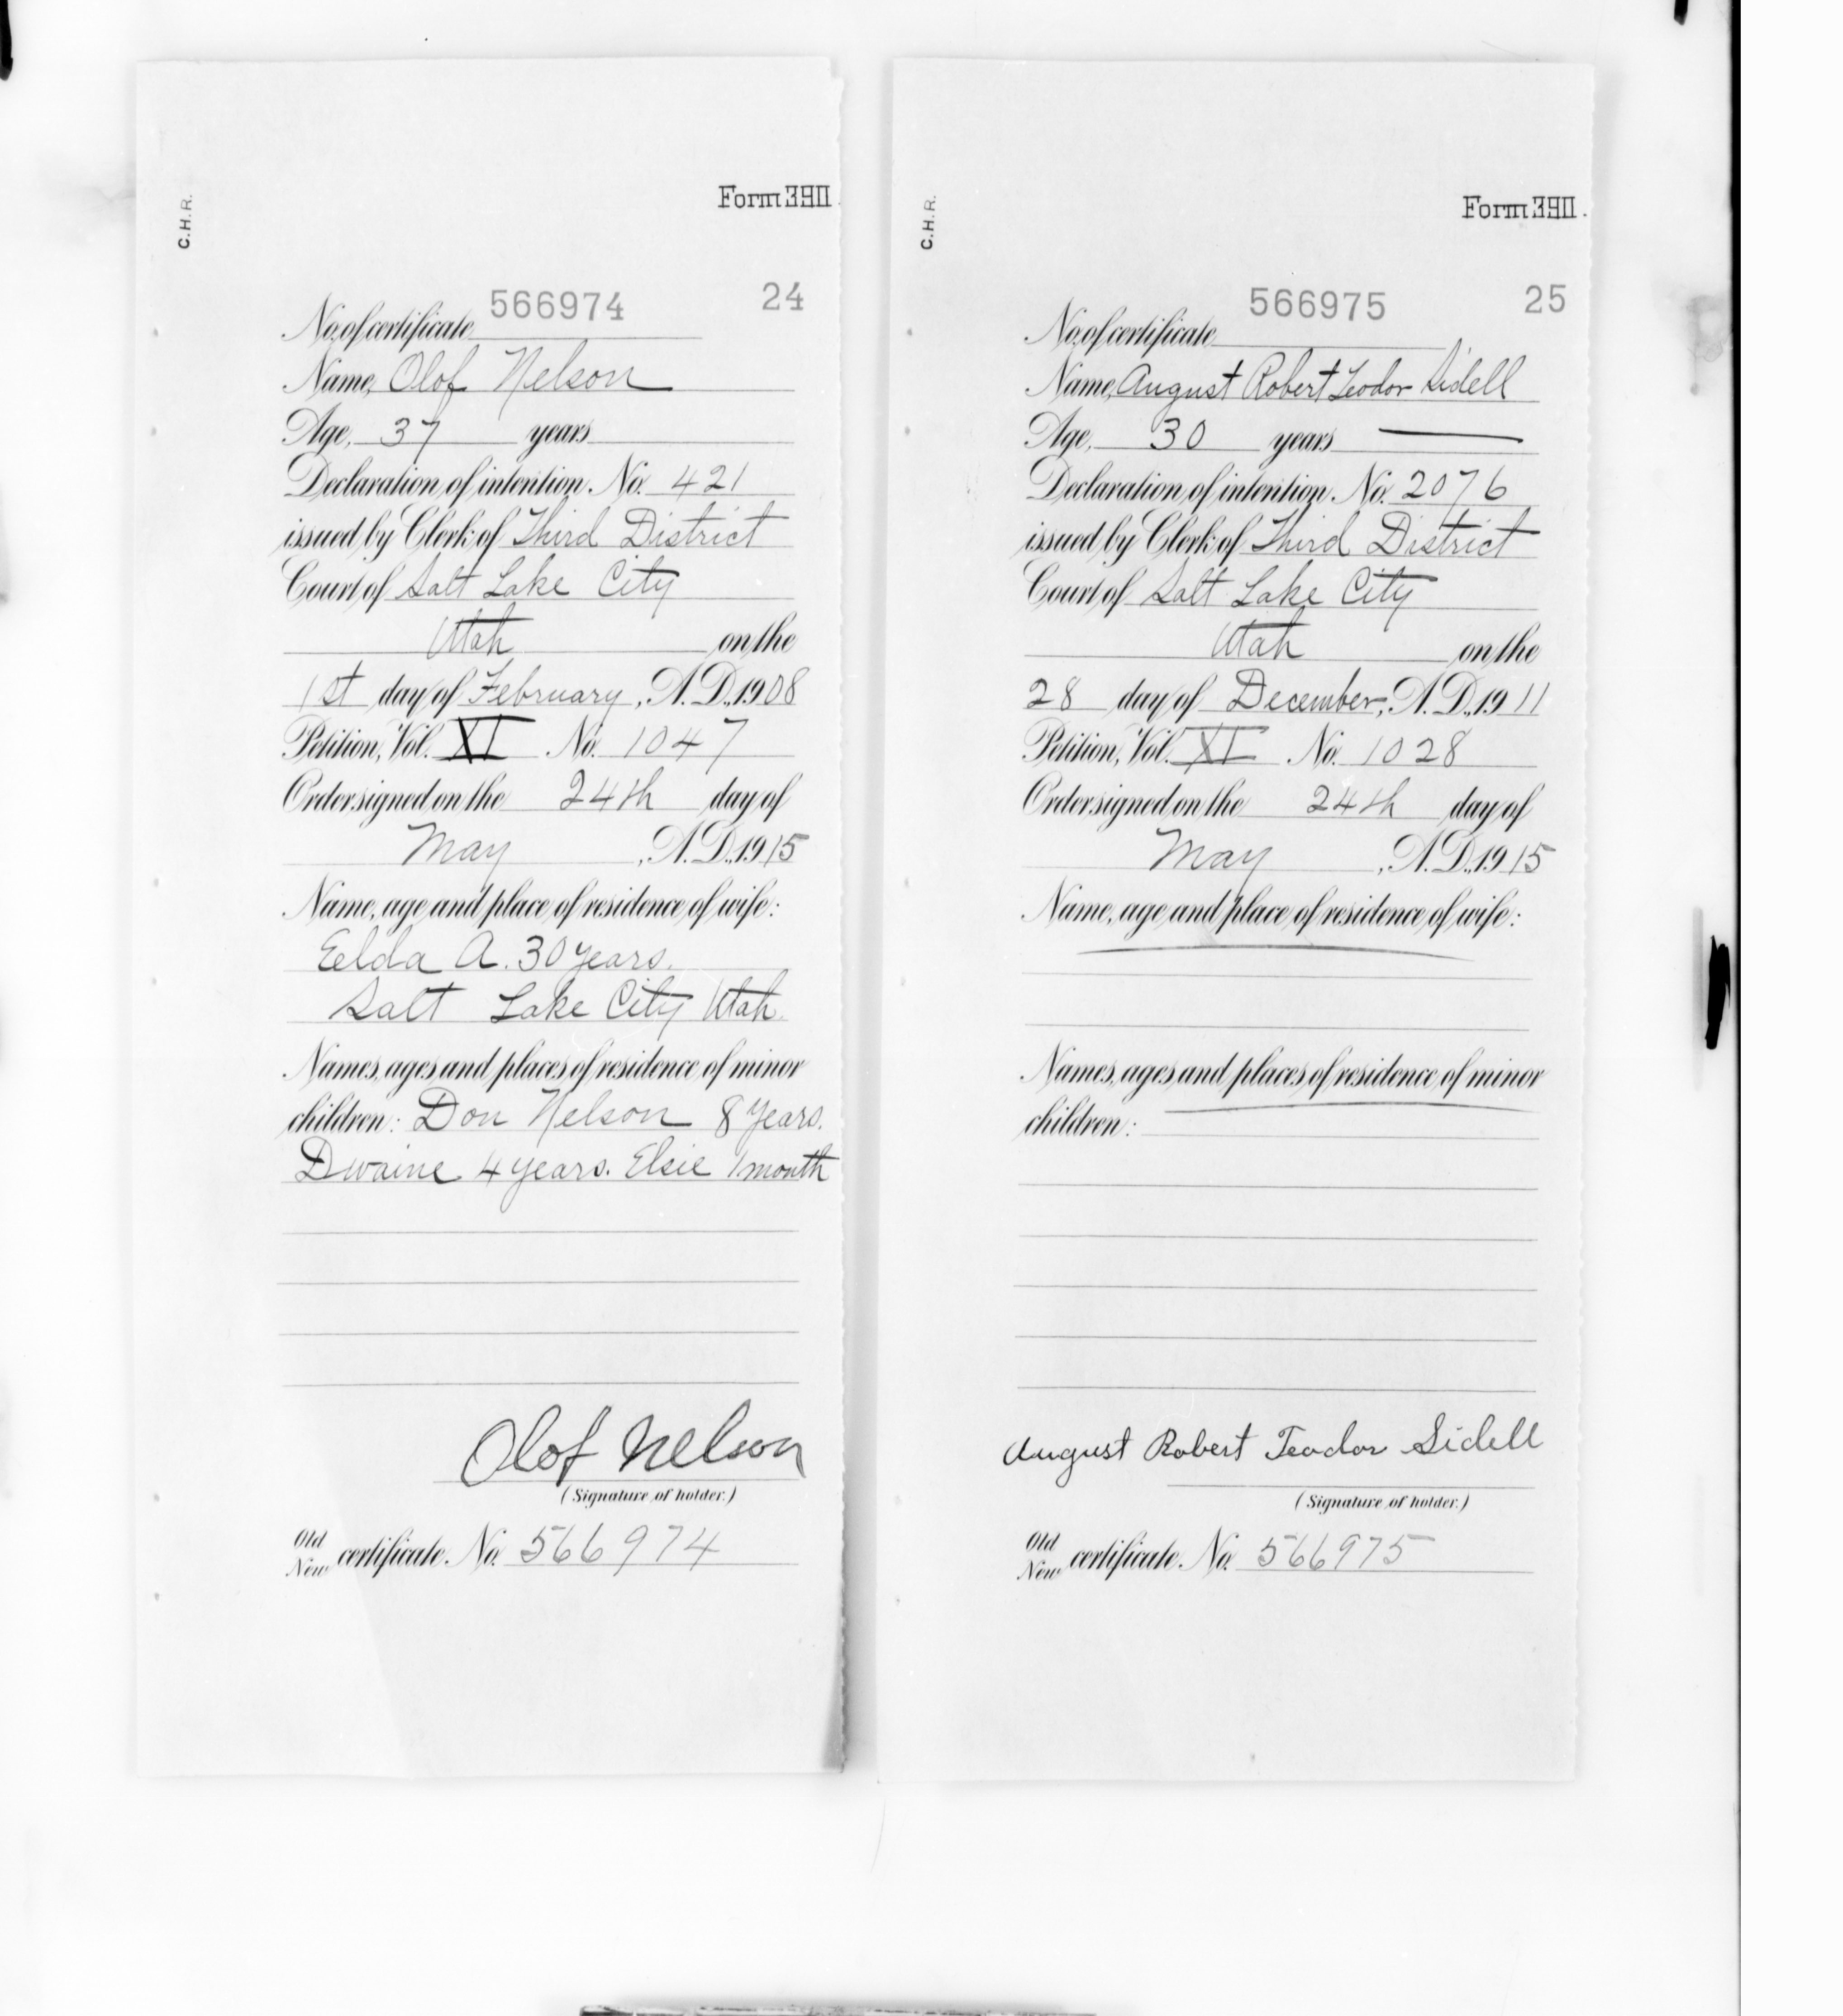 C.H.R.
Form 390.
566974 24
No. of certificate
Name, Olof Nelson
Age, 37 years
Declaration of intention. No. 421
issued by Clerk of Third District
Court of Salt Lake City
Utah on the
1st day of February, A.D. 1908
Petition, Vol. XI No. 1047
Order signed on the 24th day of
May, A.D. 1915
Name, age and place of residence of wife:
Eelda A. 30 years.
Salt Lake City Utah.
Names, ages and places of residence of minor
children: Don Nelson 8 years.
Dwaine 4 years. Elsie 1 month
Olof Nelson
(Signature of holder.)
Old
New certificate. No. 566974
C.H.R.
Form 390.
566975 25
No. of certificate
Name, August Robert Teodor Sidell
Age, 30 years
Declaration of intention. No. 2076
issued by Clerk of Third District
Court of Salt Lake City
Utah on the
28 day of December, A.D. 1911
Petition, Vol. XI No. 1028
Order signed on the 24th day of
May, A.D. 1915
Name, age and place of residence of wife:
Names, ages and places of residence of minor
children:
August Robert Teodor Sidell
(Signature of holder.)
Old
New certificate. No. 566975